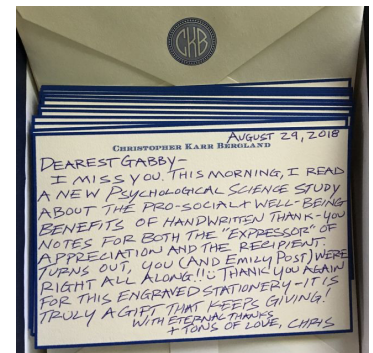 CKB
AUGUST 29, 2018
CHRISTOPHER KARR BERGLAND
DEAREST GABBY-
I MISS YOU. THIS MORNING, I READ
A NEW PSYCHOLOGICAL SCIENCE STUDY
ABOUT THE PRO-SOCIAL + WELL-BEING
BENEFITS OF HANDWRITTEN THANK-YOU
NOTES FOR BOTH THE "EXPRESSOR" OF
APPRECIATION AND THE RECIPIENT.
TURNS OUT, YOU (AND EMILY POST) WERE
RIGHT ALL ALONG!! THANK YOU AGAIN
FOR THIS ENGRAVED STATIONERY-IT IS
TRULY A GIFT THAT KEEPS GIVING!
WITH ETERNAL THANKS
+ TONS OF LOVE, CHRIS